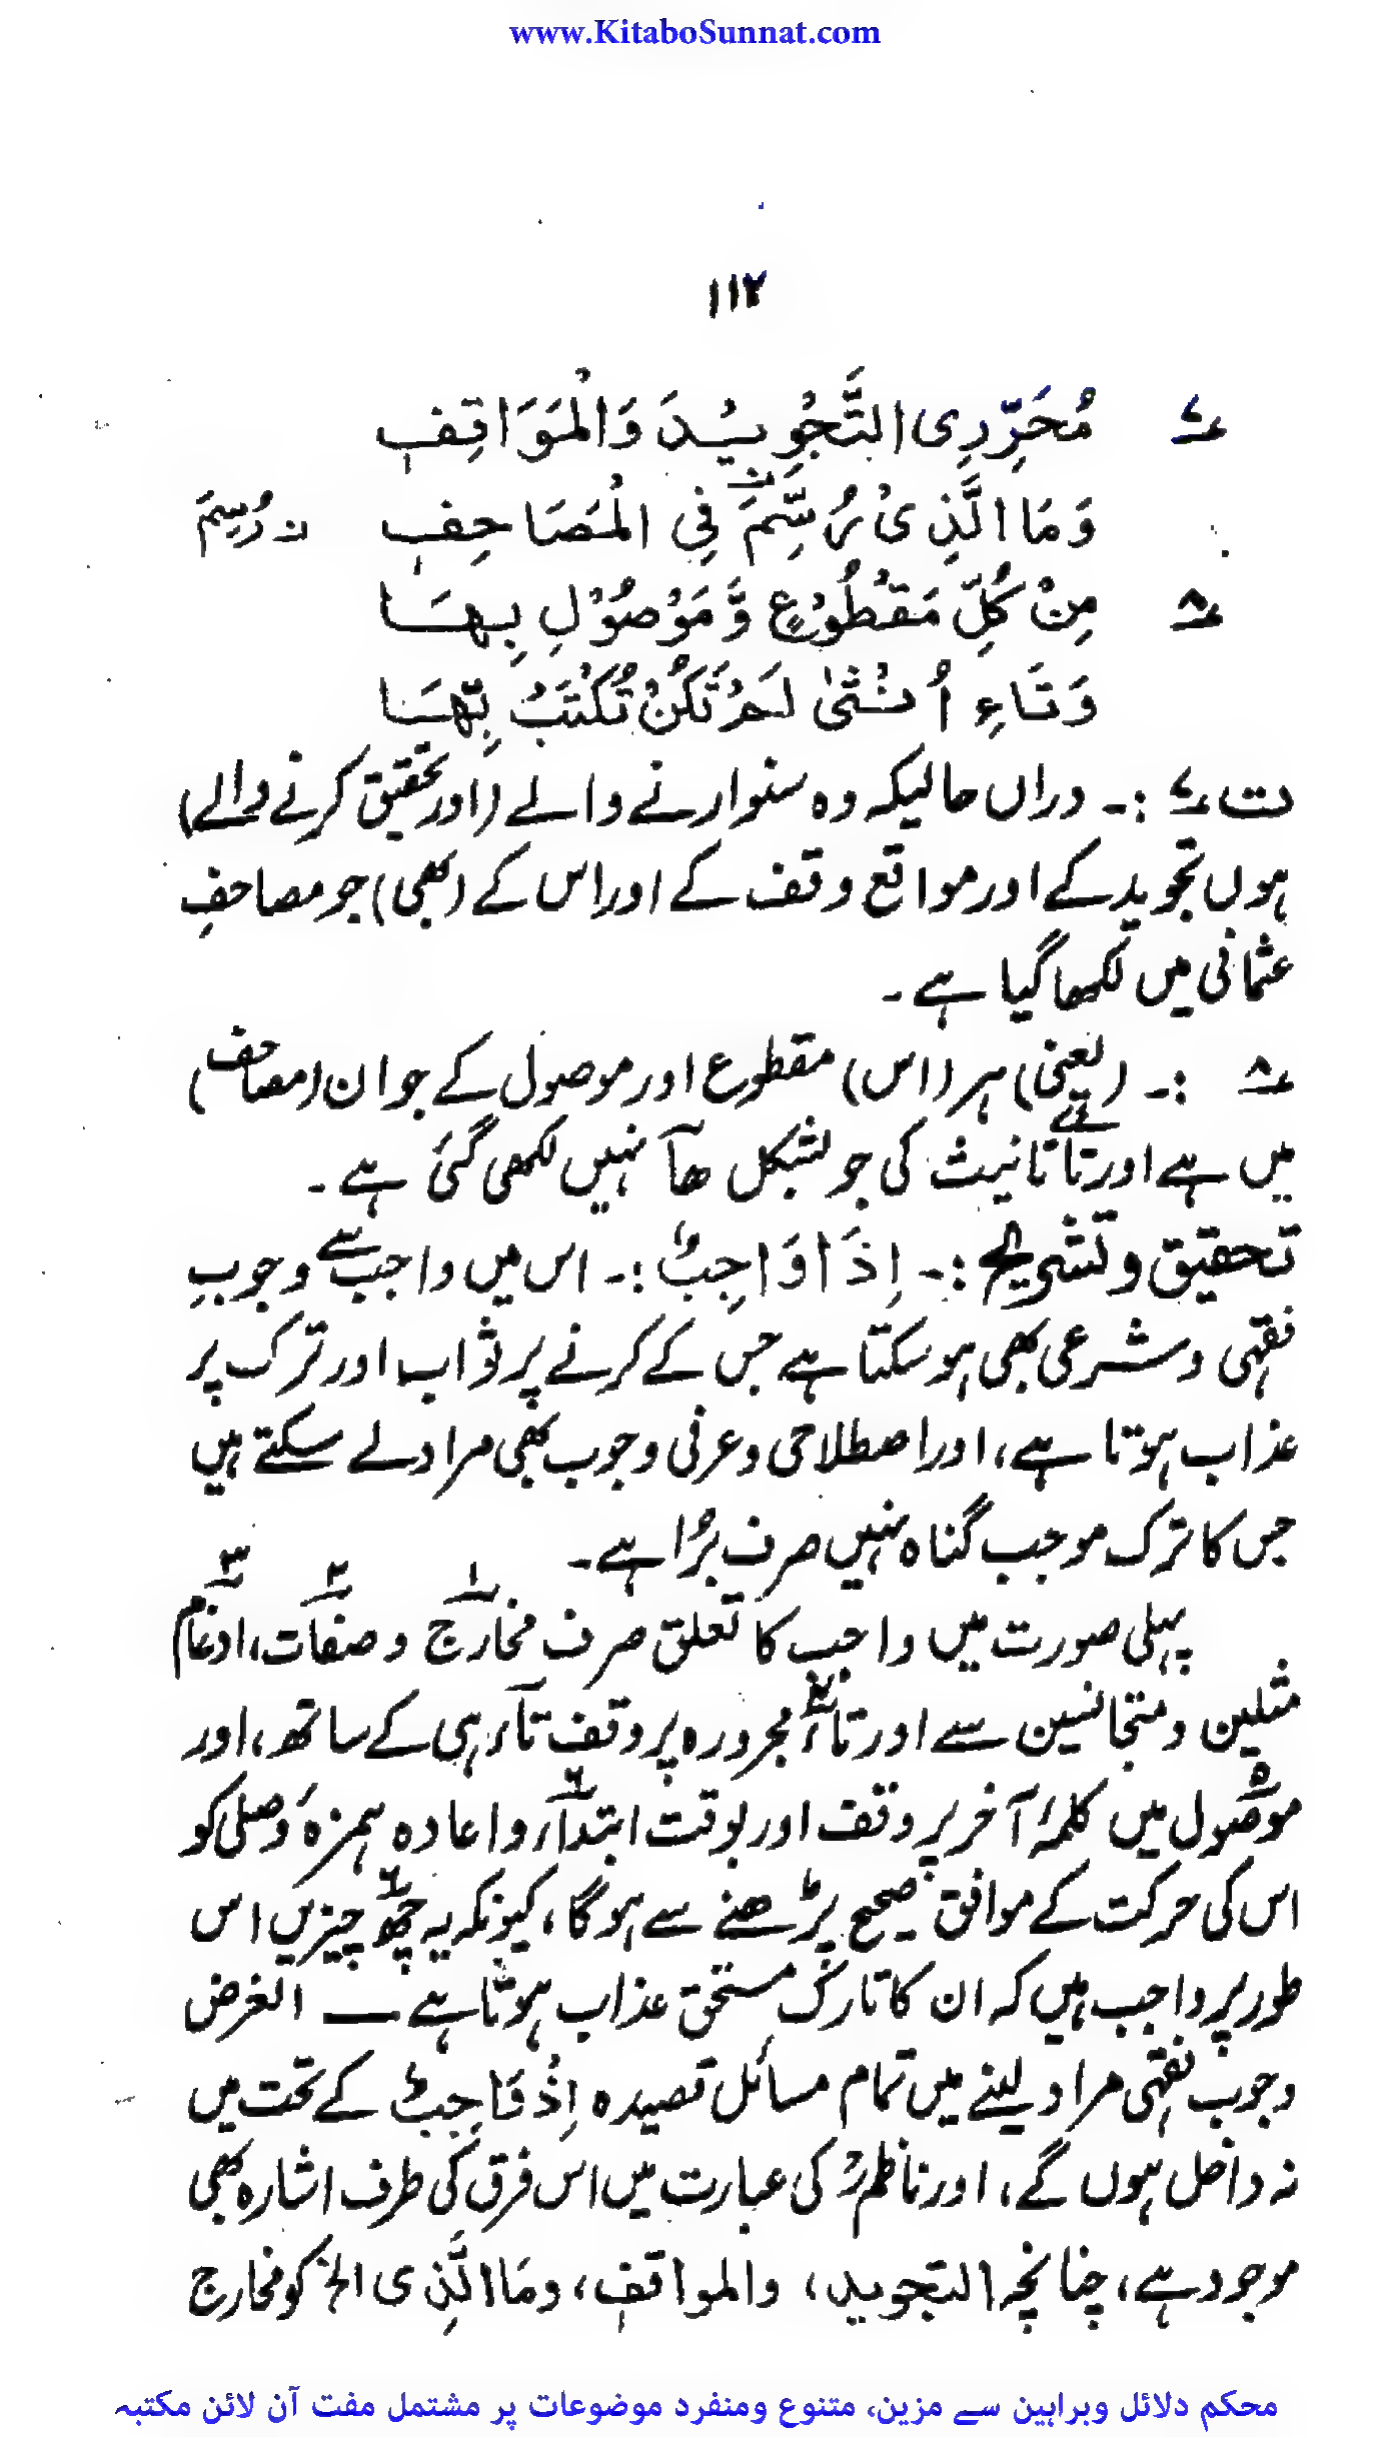 www.KitaboSunnat.com
۱۱۲
۷ مُحَرِّرِی التَّجْوِیْدِ وَالْمَوَاقِفِ
وَمَا الَّذِیْ رُسِّمَ فِی الْمَصَاحِفِ ن رُسِمَ
۸ مِنْ کُلِّ مَقْطُوْعٍ وَّمَوْصُوْلٍ بِھَا
وَتَاءِ اُنْثٰی لَمْ تَکُنْ تُکْتَبْ بِّھَا
ت ۷ :۔ دراں حالیکہ وہ سنوارنے والے (اور تحقیق کرنے والے)
ہوں تجوید کے اور مواقع وقف کے اور اس کے (بھی) جو مصاحفِ
عثمانی میں لکھا گیا ہے۔
۸ :۔ (یعنی) ہر (اس) مقطوع اور موصول کے جو ان (مصاحف)
میں ہے اور تائے تانیث کی جو بشکل ھآ نہیں لکھی گئی ہے۔
تحقیق و تشریح :۔ اِذَا وَاجِبٌ :۔ اس میں واجب سے وجوبِ
فقہی و شرعی بھی ہو سکتا ہے جس کے کرنے پر ثواب اور ترک پر
عذاب ہوتا ہے، اور اصطلاحی و عرفی وجوب بھی مراد لے سکتے ہیں
جس کا ترک موجب گناہ نہیں صرف بُرا ہے۔
پہلی صورت میں واجب کا تعلق صرف مخارج ۱ و صفات ۲، ادغام ۳
مثلین و متجانسین سے اور تاء ۴ مجرورہ پر وقف تآء ہی کے ساتھ، اور
موصول ۵ میں کلمۂ آخر پر وقف اور بوقت ابتدآء ۶ و اعادہ ہمزۂ وصلی کو
اس کی حرکت کے موافق صحیح پڑھنے سے ہوگا، کیونکہ یہ چھ چیزیں اس
طور پر واجب ہیں کہ ان کا تارک مستحق عذاب ہوتا ہے ــــ الغرض
وجوب فقہی مراد لینے میں تمام مسائل قصیدہ اِذْ وَاجِبٌ کے تحت میں
نہ داخل ہوں گے، اور ناظمؒ کی عبارت میں اس فرق کی طرف اشارہ بھی
موجود ہے، چنانچہ التجوید، والمواقفِ، وَمَا الَّذِی الخ کو مخارج
محکم دلائل وبراہین سے مزین، متنوع ومنفرد موضوعات پر مشتمل مفت آن لائن مکتبہ